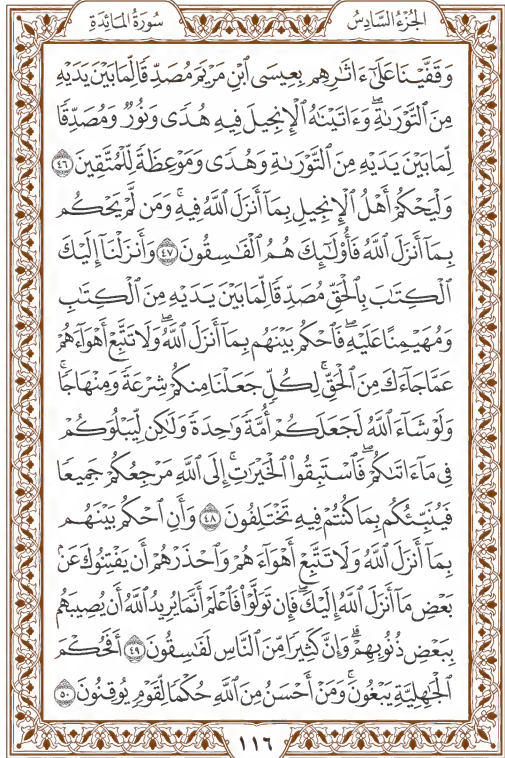 الجُزْءُ السَّادِسُ
سُورَةُ المَائِدَةِ
وَقَفَّيْنَا عَلَىٰٓ ءَاثَٰرِهِم بِعِيسَى ٱبْنِ مَرْيَمَ مُصَدِّقًا لِّمَا بَيْنَ يَدَيْهِ
مِنَ ٱلتَّوْرَىٰةِۖ وَءَاتَيْنَٰهُ ٱلْإِنجِيلَ فِيهِ هُدًى وَنُورٌ وَمُصَدِّقًا
لِّمَا بَيْنَ يَدَيْهِ مِنَ ٱلتَّوْرَىٰةِ وَهُدًى وَمَوْعِظَةً لِّلْمُتَّقِينَ ٤٦
وَلْيَحْكُمْ أَهْلُ ٱلْإِنجِيلِ بِمَآ أَنزَلَ ٱللَّهُ فِيهِۚ وَمَن لَّمْ يَحْكُم
بِمَآ أَنزَلَ ٱللَّهُ فَأُو۟لَٰٓئِكَ هُمُ ٱلْفَٰسِقُونَ ٤٧ وَأَنزَلْنَآ إِلَيْكَ
ٱلْكِتَٰبَ بِٱلْحَقِّ مُصَدِّقًا لِّمَا بَيْنَ يَدَيْهِ مِنَ ٱلْكِتَٰبِ
وَمُهَيْمِنًا عَلَيْهِۖ فَٱحْكُم بَيْنَهُم بِمَآ أَنزَلَ ٱللَّهُۖ وَلَا تَتَّبِعْ أَهْوَآءَهُمْ
عَمَّا جَآءَكَ مِنَ ٱلْحَقِّۚ لِكُلٍّ جَعَلْنَا مِنكُمْ شِرْعَةً وَمِنْهَاجًاۚ
وَلَوْ شَآءَ ٱللَّهُ لَجَعَلَكُمْ أُمَّةً وَٰحِدَةً وَلَٰكِن لِّيَبْلُوَكُمْ
فِى مَآ ءَاتَىٰكُمْۖ فَٱسْتَبِقُوا۟ ٱلْخَيْرَٰتِۚ إِلَى ٱللَّهِ مَرْجِعُكُمْ جَمِيعًا
فَيُنَبِّئُكُم بِمَا كُنتُمْ فِيهِ تَخْتَلِفُونَ ٤٨ وَأَنِ ٱحْكُم بَيْنَهُم
بِمَآ أَنزَلَ ٱللَّهُ وَلَا تَتَّبِعْ أَهْوَآءَهُمْ وَٱحْذَرْهُمْ أَن يَفْتِنُوكَ عَنۢ
بَعْضِ مَآ أَنزَلَ ٱللَّهُ إِلَيْكَۖ فَإِن تَوَلَّوْا۟ فَٱعْلَمْ أَنَّمَا يُرِيدُ ٱللَّهُ أَن يُصِيبَهُم
بِبَعْضِ ذُنُوبِهِمْۗ وَإِنَّ كَثِيرًا مِّنَ ٱلنَّاسِ لَفَٰسِقُونَ ٤٩ أَفَحُكْمَ
ٱلْجَٰهِلِيَّةِ يَبْغُونَۚ وَمَنْ أَحْسَنُ مِنَ ٱللَّهِ حُكْمًا لِّقَوْمٍ يُوقِنُونَ ٥٠
١١٦